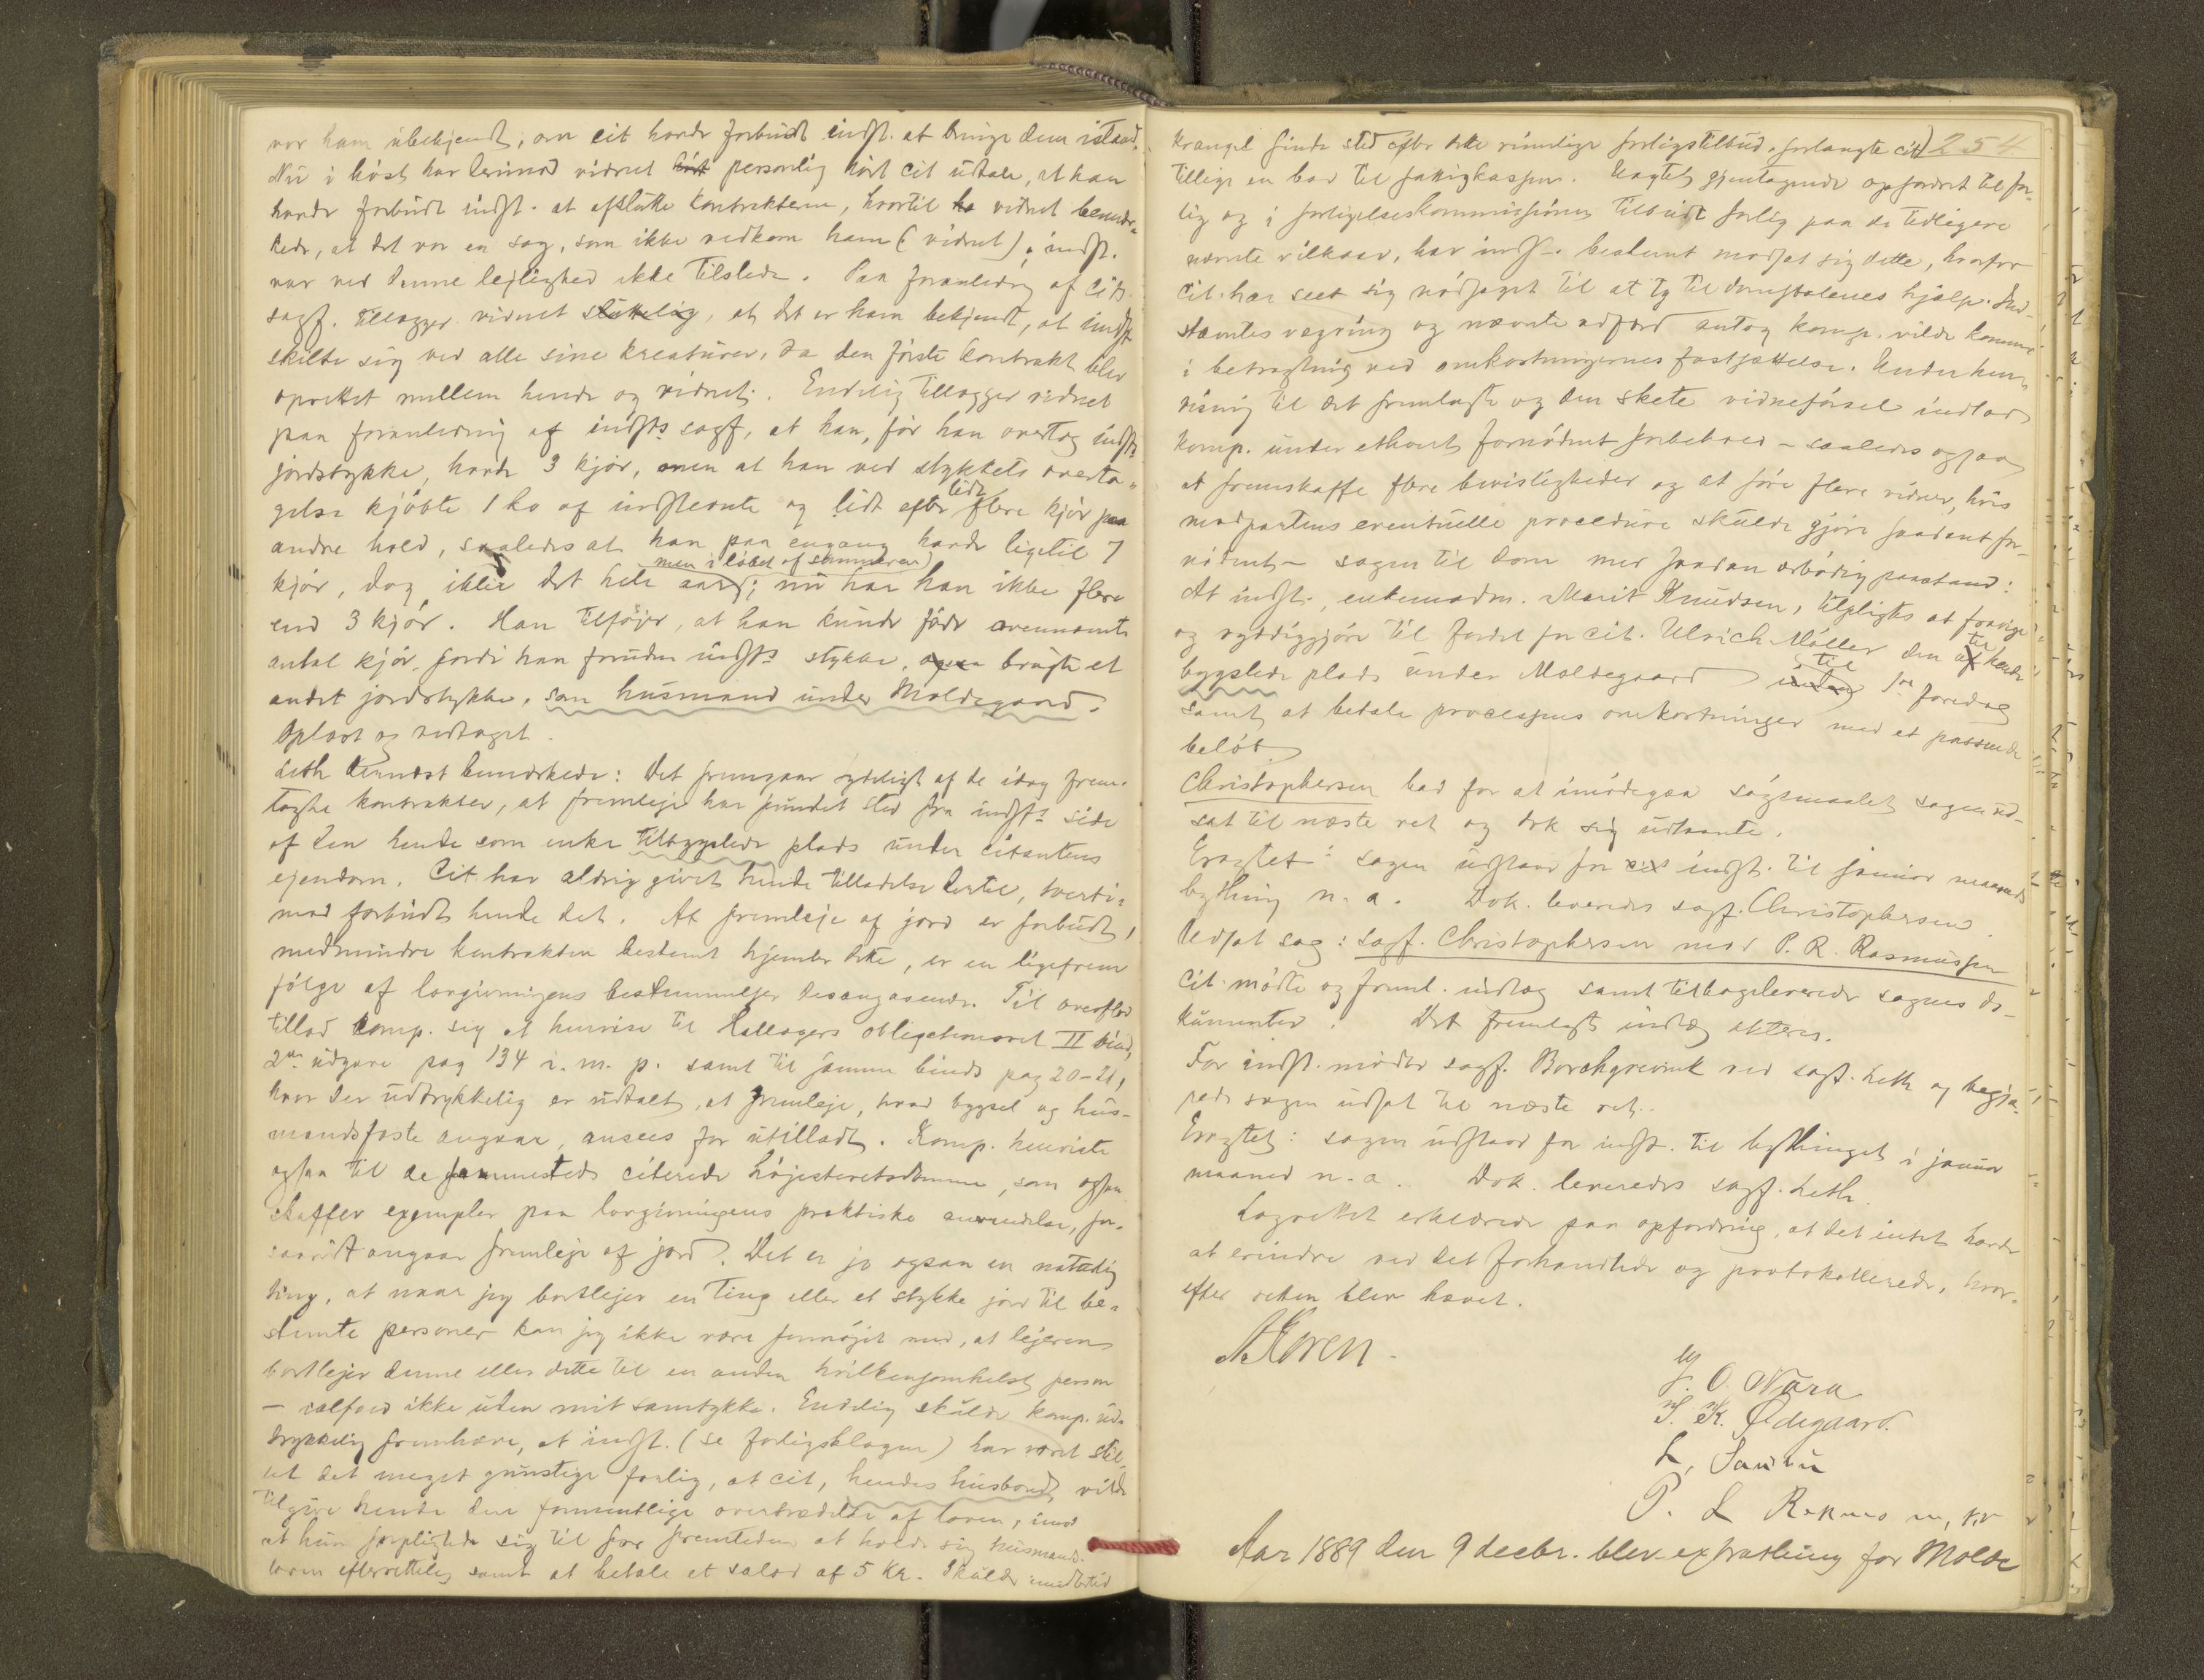 var ham ubekjendt, om cit havde forbudt indst. at bringe dem istand.
Nu i høst har derimod vidnet hørt personlig hørt cit udtale, at han
havde forbudt indst. at afslutte kontrakterne, hvortil ha vidnet bemær-
kede, at det var en sag, som ikke vedkom ham (vidnet); indst.
var ved denne lejlighed ikke tilstede. Paa foranledng af cits
sagf. tillægger vidnet sluttelig, at det er ham bekjendt, at indst
skilte sig ved alle sine kreaturer, da den første kontrakt blev
oprettet mellem hende og vidnet. Endelig tillægger vidnet
paa foranledning af indsts sagf, at han, før han overtog indsts
jordstykke, havde 3 kjør, men at han ved stykkets overta-
gelse kjøbte 1 ko af indstevnte og lidt efter lidt flere kjør paa
andre hold, saaledes at han paa engang havde ligetil 7
men i løbet af sommeren
kjør, dog ikke det hele aar; nu har han ikke flere
end 3 kjør. Han tilføjer, at han kunde føde ovennævnte
antal kjør, fordi han foruden indsts stykke, ogsaa brugte et
andet jordstykke, som husmand under Moldegaard.
Oplæst og vedtaget.
Leth dernæst bemærkede: Det fremgaar tydeligt af de idag frem-
lagte kontrakter, at fremleje har fundet sted fra indsts side
af den hende som enke tilbygslede plads under citantens
ejendom. Cit. har aldrig givet hende tilladelse dertil, tverti-
mod forbudt hende det. At fremleje af jord er forbudt,
medmindre kontrakten bestemt hjemler dette, er en ligefrem
følge af lovgivningens bestemmelser desangaaende. Til overflod
tillod komp. sig at henvise til Hallagers obligationsret II bind,
2den udgave pag 134 i. m. p. samt til samme binds pag 20-21,
hvor der udtrykkelig er udtalt, at fremleje, hvad bygsel og hus-
mandsfæste angaar, ansees for utilladt. Komp. henviste
ogsaa til de sammesteds citerede højesteretsdomme, som ogsaa
skaffer exempler paa lovgivningens praktiske anvendelse, for-
saavidt angaar fremleje af jord. Det er jo ogsaa en naturlig
ting, at naar jeg bortlejer en ting eller et stykke jord til be-
stemte personer kan jeg ikke være fornøjet med, at lejeren
bortlejer denne eller dette til en anden hvilkensomhelst person
- ialfald ikke uden mit samtykke. Endelig skulde komp. ud-
trykkelig fremhæve, at indst. (se forligsklagen) har været stil-
let det meget gunstige forlig, at cit, hendes husbond, vilde
tilgive hende den formentlige overtrædelse af loven, imod
at hun forpligtede sig til for fremtiden at holde sig husmands-
loven efterrettelig samt at betale et salær af 5 Kr. Skulde imidlertid
254
krangel finde sted efter dette rimelige forligstilbud, forlangte cit
tillige en bod til fattigkassen. Uagtet gjentagende opfordret til for-
lig og i forligelseskommissionen tilbudt forlig paa de tidligere
nævnte vilkaar, har indst. bestemt modsat sig dette, hvorfor
cit. har seet sig nødsaget til at ty til domstolenes hjælp. Ind-
stævntes vægring og nævnte adfærd antog komp. vilde komme
i betragtning ved omkostningernes fastsættelse. Under hen-
visning til det fremlagte og den skete vidneførsel indlod
komp. under ethvert fornødent forbehold - saaledes ogsaa
at fremskaffe flere bevisligheder og at føre flere vidner, hvis
modpartens eventuelle procedure skulde gjøre saadant for-
nødent - sagen til dom med saadan ærbødig paastand:
At indst., enkemadm. Marit Knudsen, tilpligtes at fravige
og ryddiggjøre til fordel for cit. Ulrich Møller den af til hende
bygslede plads under Moldegaard inden til 1ste faredag
samt at betale processens omkostninger med et passende
beløb.
Christophersen bad for at imødegaa søgsmaalet sagen ud-
sat til næste ret og dok sig udlaante.
Eragtet: sagen udstaar for cit indst. til januar maaneds
bything n. a. Dok. leveredes sagf. Christophersen.
Udsat sag: sagf. Christophersen mod P. R. Rasmussen
Cit. mødte og freml. indlæg samt tilbageleverede sagens do-
kumenter. Det fremlagte indlæg akteres.
For indst. mødte sagf. Borchgrevink ved sagf. Leth og begjæ-
rede sagen udsat til næste ret.
Eragtet: sagen udstaar for indst. til bythinget i januar
maaned n. a. Dok. leveredes sagf. Leth.
Lagrettet erklærede paa opfordring, at det intet havde
at erindre ved det forhandlede og protokollerede, hvor-
efter retten blev hævet.
Koren.
J. O. Nøra
S. K. Ødegaard.
L. Sandøu
P. L Røknes m, p
Aar 1889 den 9 decbr. blev extrathing for Molde